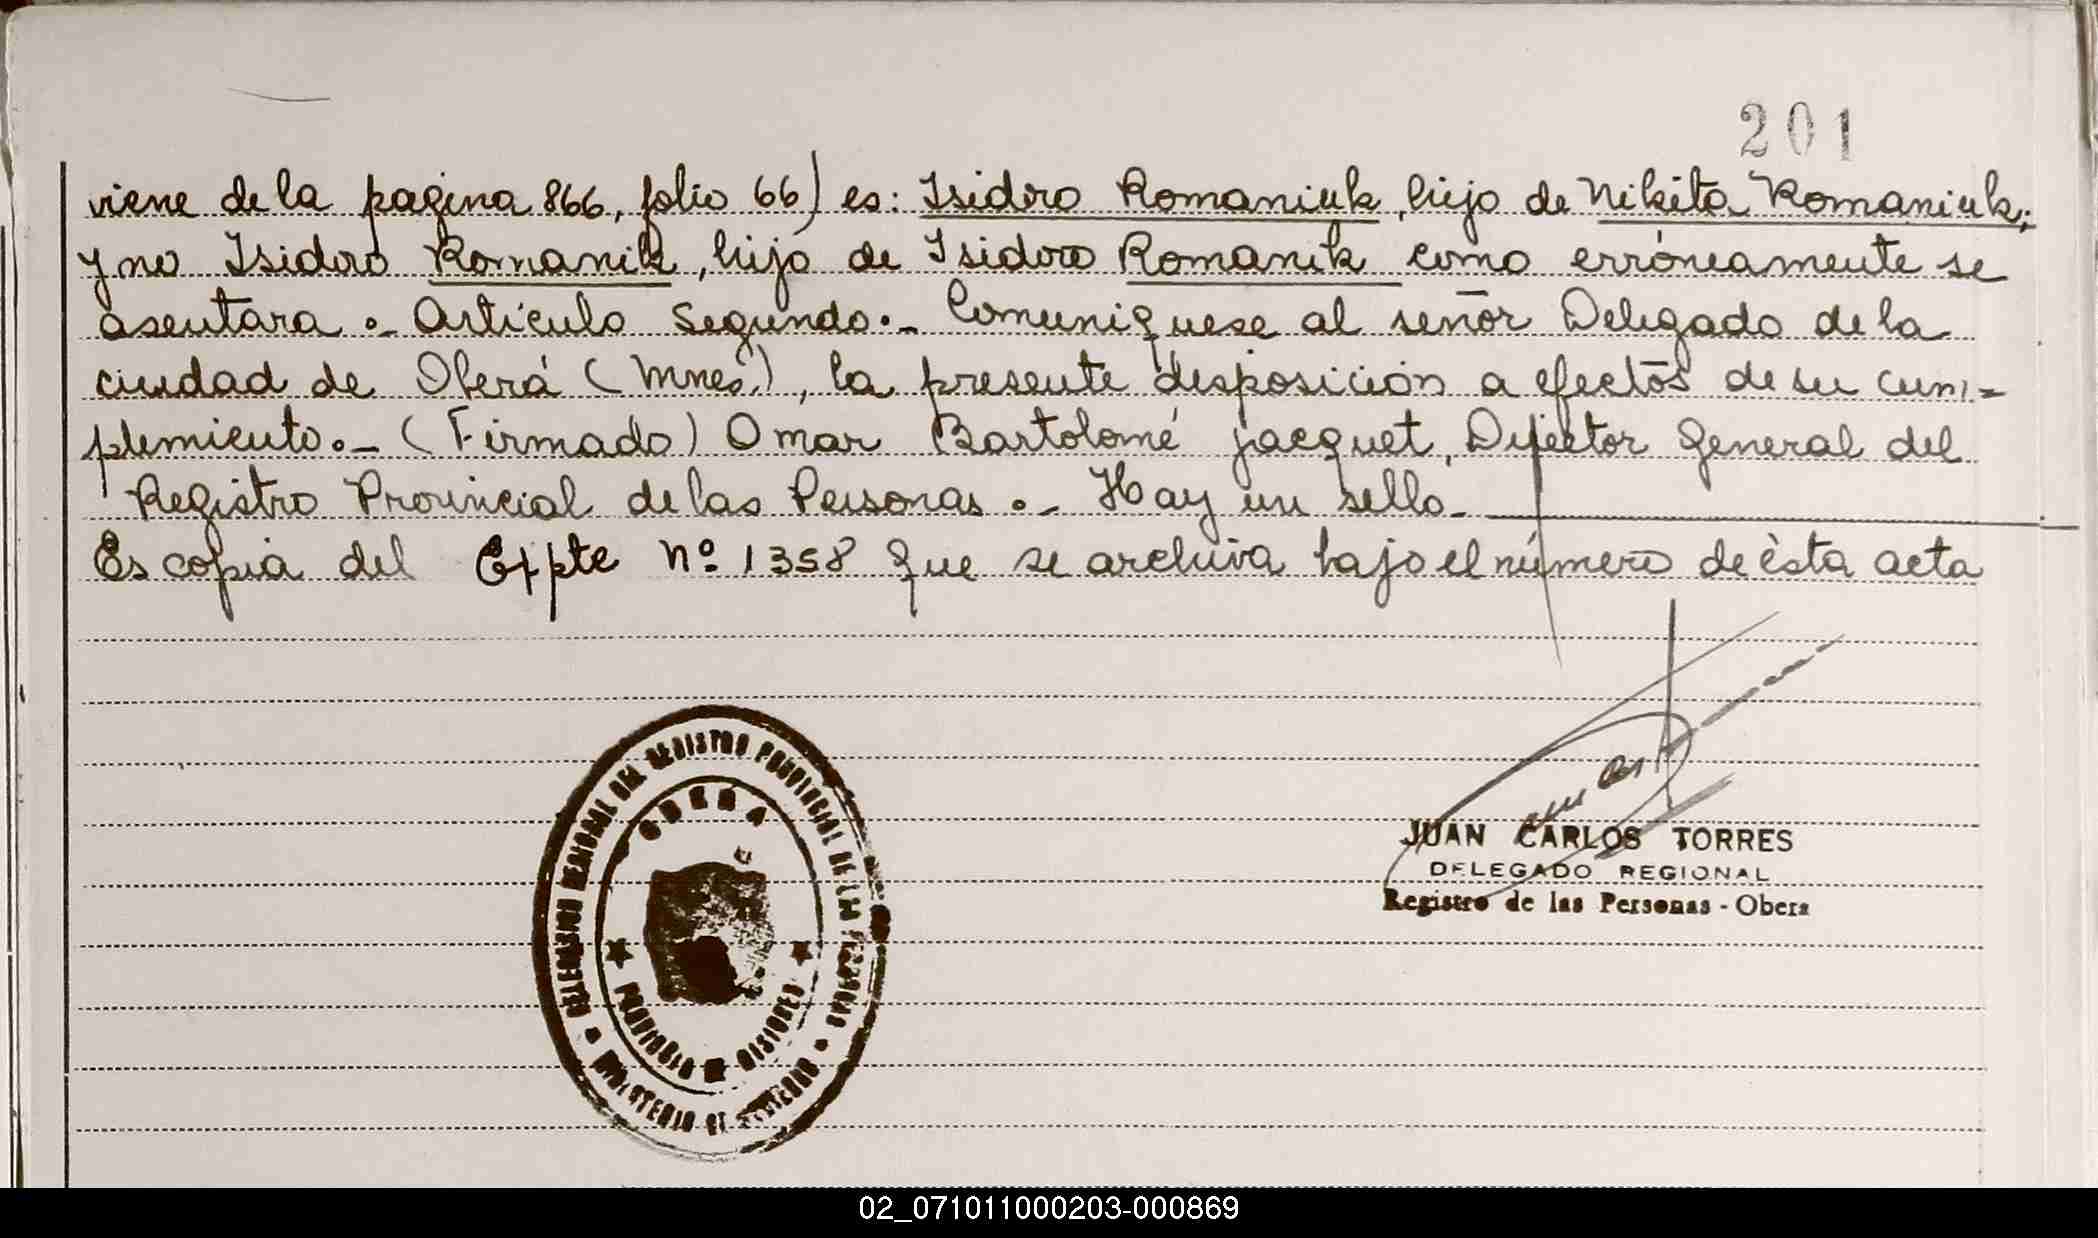 201
viene de la pagina 866, folio 66) es: Isidro Romaniuk, hijo de Nikita Romaniuk;
y no Isidoro Romanik, hijo de Isidoro Romanik como erróneamente se
asentara.- Artículo Segundo.- Comuniquese al señor Delegado de la
ciudad de Oberá (Mnes), la presente disposición a efectos de su cum-
plimiento.- (Firmado) Omar Bartolomé Jacquet, Director General del
Registro Provincial de las Personas.- Hay un sello-
Es copia del Expte Nº 1358 que se archiva bajo el número de ésta acta
REGIONAL DEL REGISTRO PROVINCIAL DE LAS PERSONAS
OBERA
PROVINCIA DE MISIONES
MINISTERIO DE GOBIERNO
JUAN CARLOS TORRES
DELEGADO REGIONAL
Registro de las Personas - Obera
02_071011000203-000869